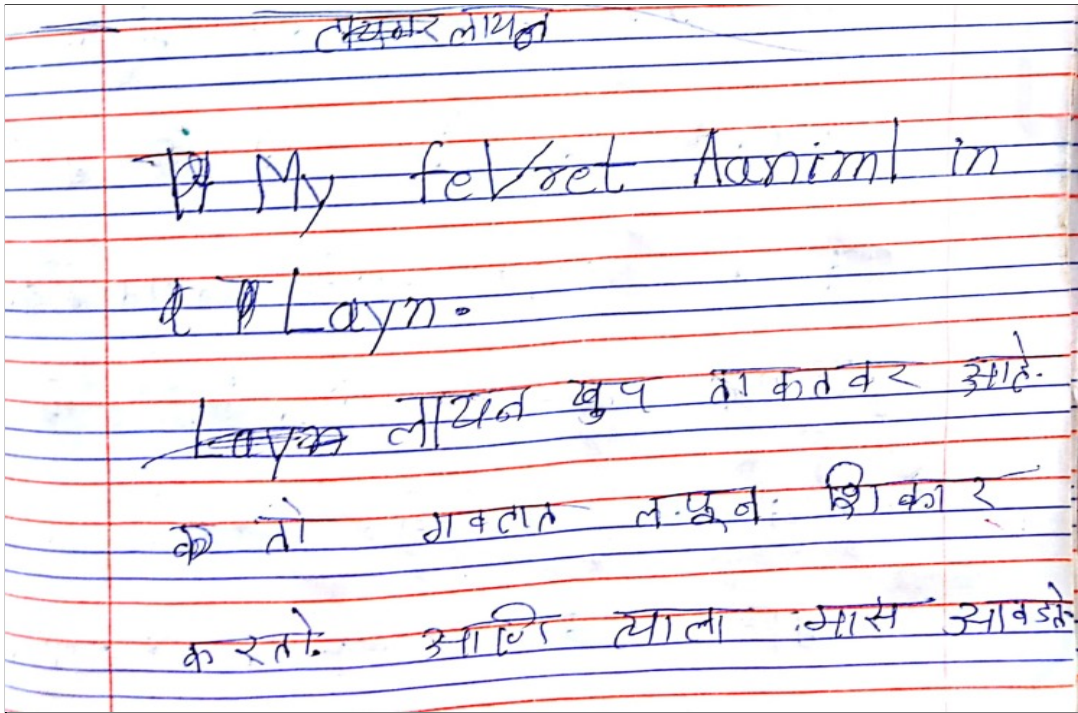 लायन
My fevret Aaniml in
Layn.
लायन खुप ताकतवर आहे.
तो गवतात लपून शिकार
करतो. आणि त्याला मास आवडते